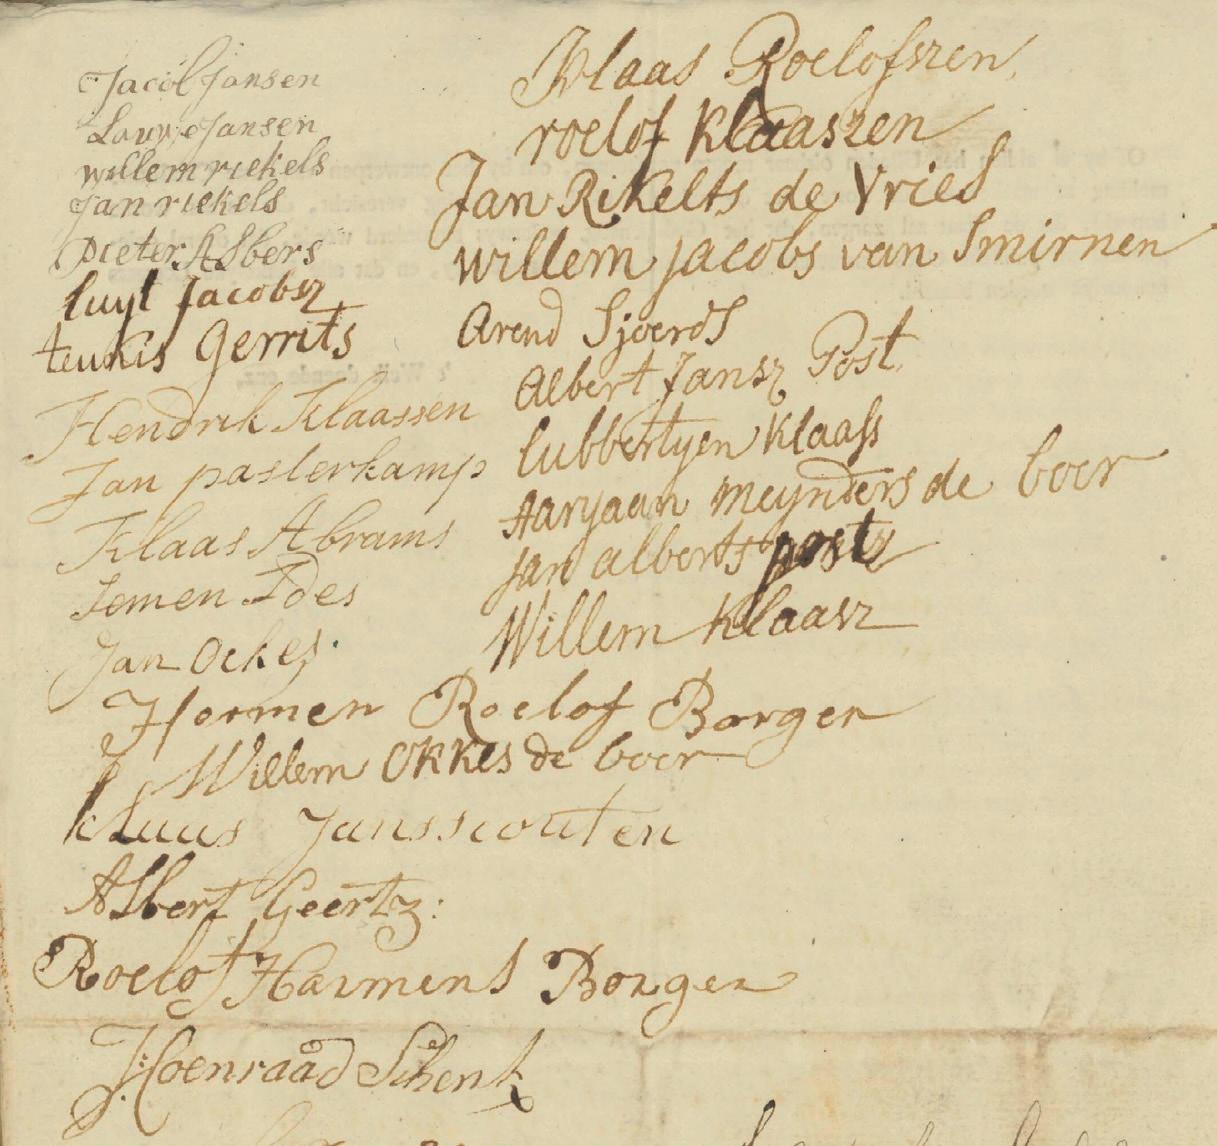 Jacob Jansen
Louwe Jansen
willem riekels
Jan riekels
pieter Albers
luyt Jacobsz
teunis Gerrits
Hendrik Klaassen
Jan pasterkamp
Klaas Abrams
Jemen Ides
Jan Ockes
Klaas Roelofszen
roelof Klaaszen
Jan Rikelts de Vries
willem jacobs van Smirnen
Arend Sjoerds
Albert Jansz Post
lubbertyen Klaass
Aaryaan meynders de boer
jan alberts post
Willem Klaasz
Hermen Roelof Borger
Willem Okkes de boer
klaas Jansscouten
Albert Geertz:
Roelof Harmens Borger
J: Coenraad Schenk